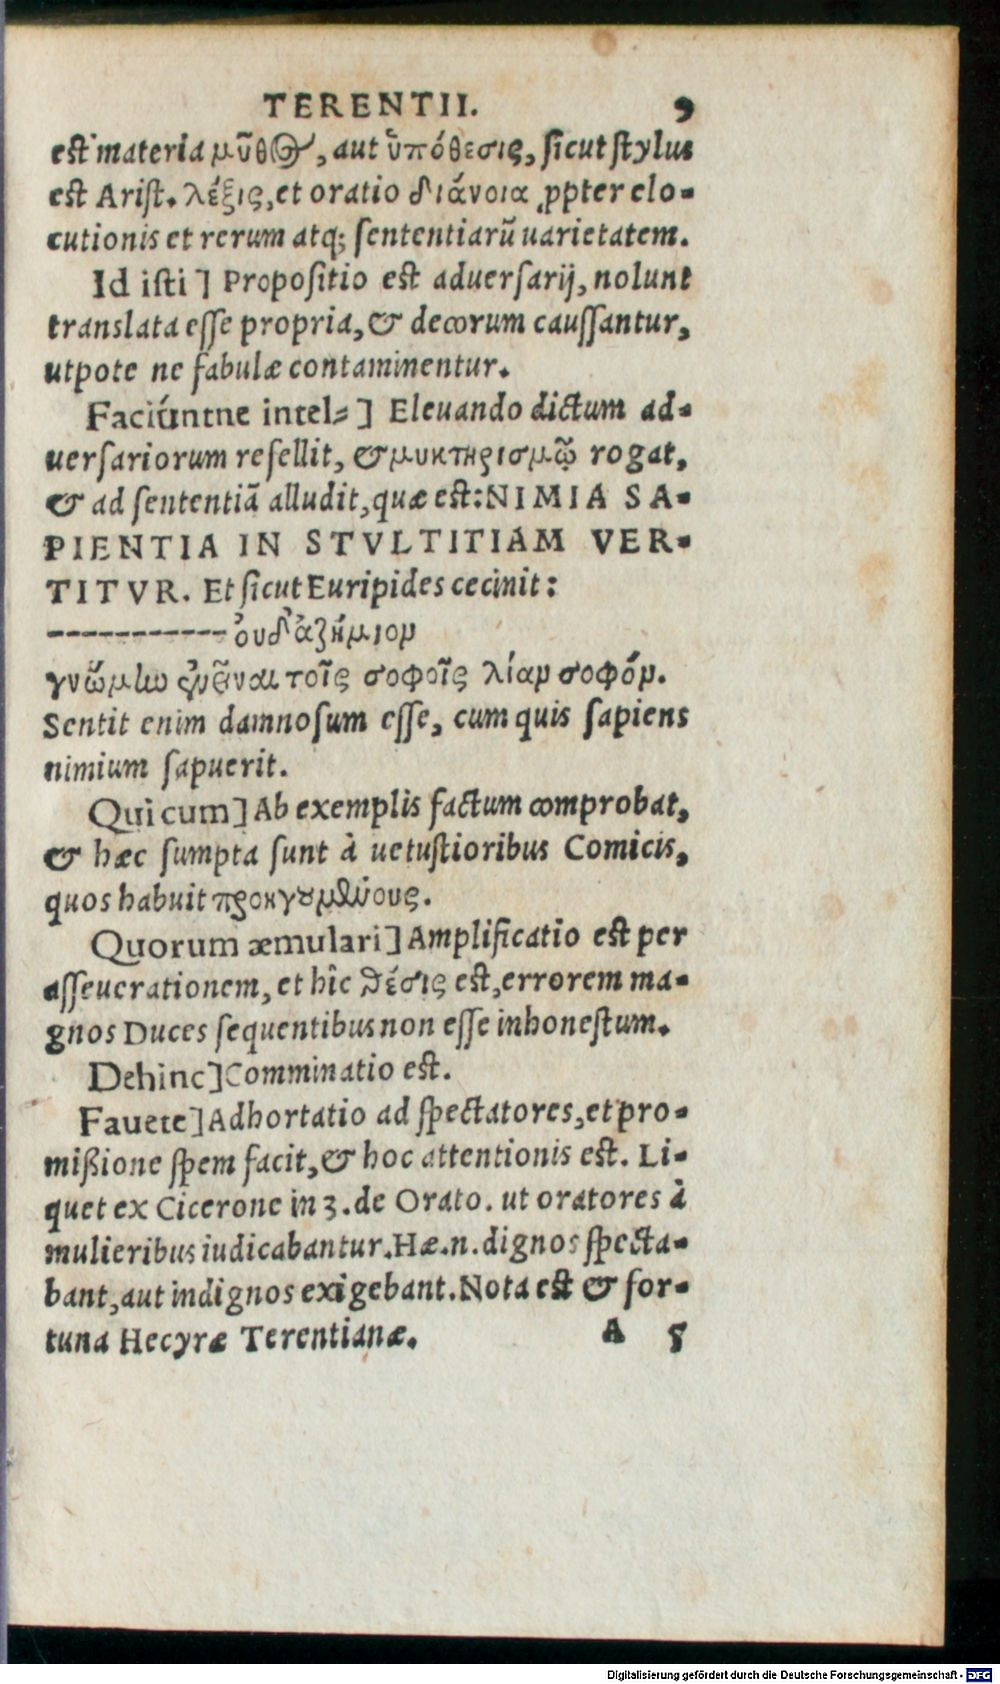 TERENTII. 9
est materia μῦθος, aut ὑπόθεσις, sicut stylus
est Arist. λέξις, et oratio διάνοια ꝓpter elo-
cutionis et rerum atq; sententiarũ uarietatem.
Id isti] Propositio est aduersarij, nolunt
translata esse propria, & decorum caussantur,
utpote ne fabulæ contaminentur.
Faciúntne intel-] Eleuando dictum ad-
uersariorum refellit, & μυκτηρισμῷ rogat,
& ad sententiã alludit, quæ est: NIMIA SA-
PIENTIA IN STVLTITIAM VER-
TITVR. Et sicut Euripides cecinit:
----------- ὀυδ' ἀζήμιον
γνώμην ἐνεῖναι τοῖς σοφοῖς λίαν σοφόν.
Sentit enim damnosum esse, cum quis sapiens
nimium sapuerit.
Qui cum] Ab exemplis factum comprobat,
& hæc sumpta sunt à uetustioribus Comicis,
quos habuit προηγουμένους.
Quorum æmulari] Amplificatio est per
asseuerationem, et hîc θέσις est, errorem ma-
gnos Duces sequentibus non esse inhonestum.
Dehinc] Comminatio est.
Fauete] Adhortatio ad spectatores, et pro-
mißione spem facit, & hoc attentionis est. Li-
quet ex Cicerone in 3. de Orato. ut oratores à
mulieribus iudicabantur. Hæ.n. dignos specta-
bant, aut indignos exigebant. Nota est & for-
tuna Hecyræ Terentianæ. A 5
Digitalisierung gefördert durch die Deutsche Forschungsgemeinschaft - DFG